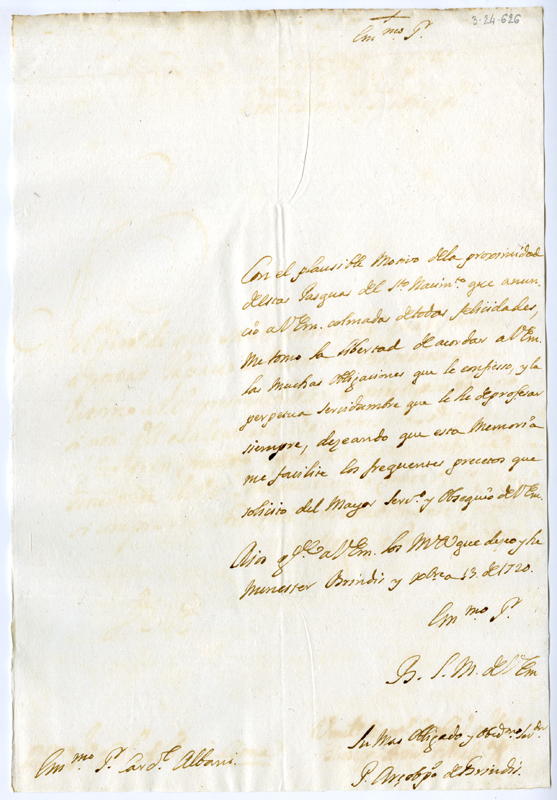 3-24-626
Em.mo S.r
Con el plausible Motivo dela proximidad
destas Pasquas del S.to Nacim.to que anun-
cio a V.Em. colmadas de todas felicidades,
Me tomo la libertad de acordar a V.Em.
las Muchas Obligaciones que le confiesso, y la
perpetua servidumbre que le he de profesar
siempre, dezeando que esta Memoria
me facilite los frequentes precetos que
solicito del Mayor Serv.o y Obsequio de V.Em.
Dios g.de a V.Em. los M.s A.s que deseo y he
Menester Brindis y 13. de 1720.
Em.mo S.r
B. L. M. de V.Em
Su Mas Obligado y Obed.mo Ser.dr
P. Arçobpo de Brindis.
Em.mo S.r Card.l Albani.